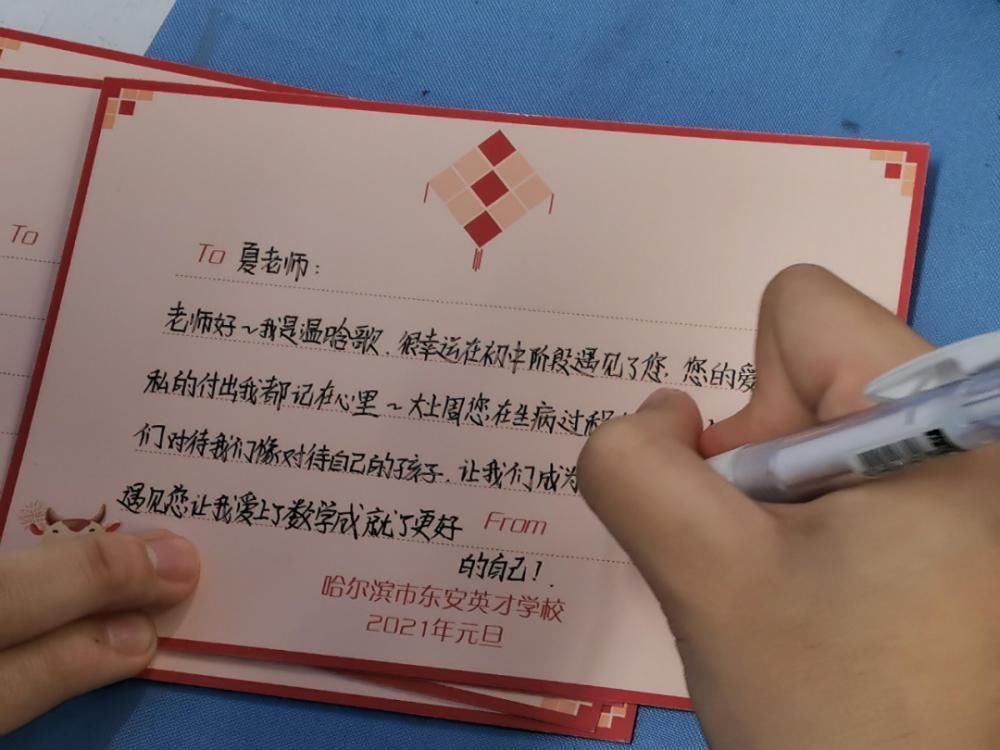 To
To 夏老师:
老师好~我是温哈歌.很幸运在初中阶段遇见了您.您的爱
私的付出我都记在心里~大上周您在生病过程
们对待我们像对待自己的孩子.让我们成为
遇见您让我爱上了数学成就了更好 From
的自己!
哈尔滨市东安英才学校
2021年元旦